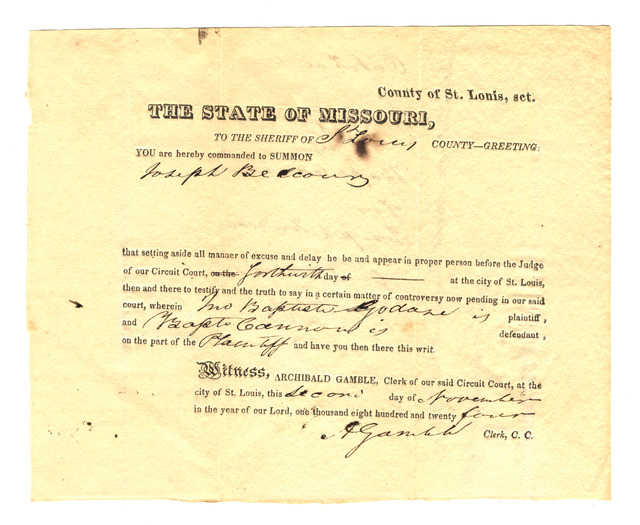 County of St. Louis, sct.
THE STATE OF MISSOURI,
TO THE SHERIFF OF St Louis COUNTY—GREETING:
YOU are hereby commanded to SUMMON
Joseph
that setting aside all manner of excuse and delay he be and appear in proper person before the Judge
of our Circuit Court, on the forthwith day of at the city of St. Louis,
then and there to testify and the truth to say in a certain matter of controversy now pending in our said
court, wherein Jno Baptiste is plaintiff,
and Bapte is defendant,
on the part of the Plaintiff and have you then there this writ.
Witness, ARCHIBALD GAMBLE, Clerk of our said Circuit Court, at the
city of St. Louis, this second day of November
in the year of our Lord, one thousand eight hundred and twenty four
A Gamble Clerk, C. C.